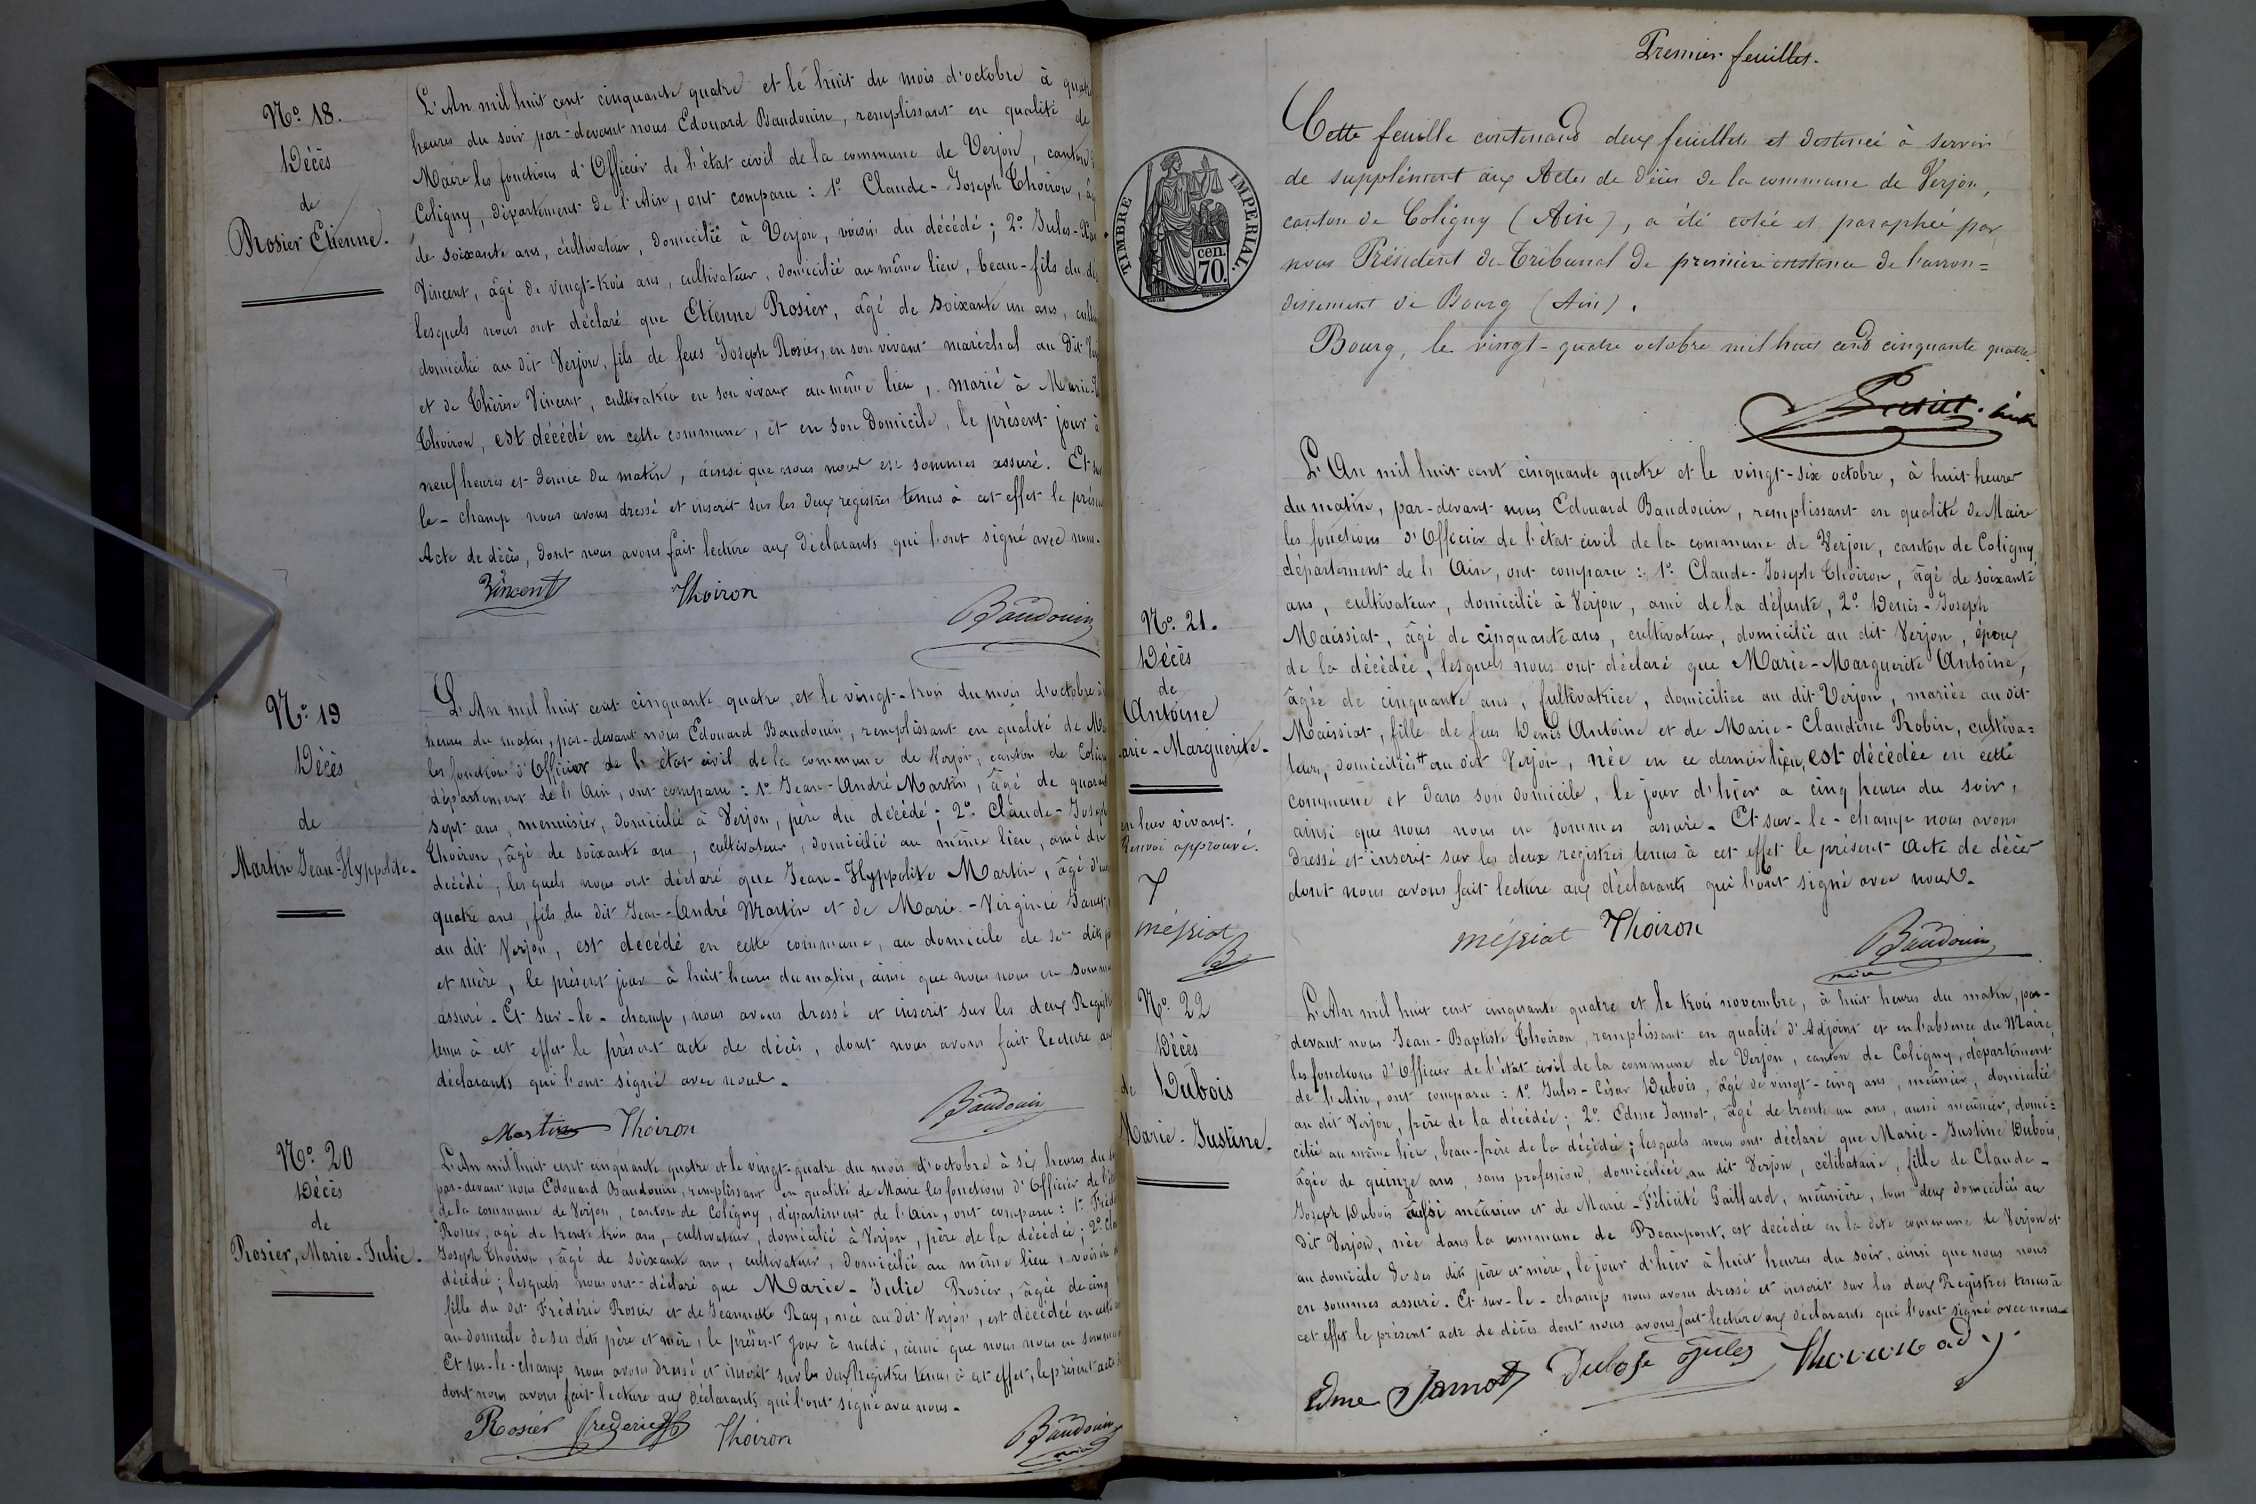 N.º 18.
Décès
de
Rosier Etienne.
L'An mil huit cent cinquante quatre et le huit du mois d'octobre à
heures du soir par-devant nous Edouard Baudouin, remplissant en qualité de
Maire les fonctions d'Officier de l'état civil de la commune de Verjon, canton
Coligny, département de l'Ain, ont comparu : 1º Claude-Joseph Thoiron,
de soixante ans, cultivateur, domicilié à Verjon, voisin du décédé ; 2º Jules-
Vincent, âgé de vingt-trois ans, cultivateur, domicilié au même lieu, beau-fils du
lesquels nous ont déclaré que Etienne Rosier, âgé de soixante un ans,
domicilié au dit Verjon, fils de feus Joseph Rosier, en son vivant maréchal au dit
et de Thérèse Vincent, cultivatrice en son vivant au même lieu, marié à Marie
Thoiron, est décédé en cette commune, et en son domicile, le présent jour à
neuf heures et demie du matin, ainsi que nous nous en sommes assuré. Et
le-champ nous avons dressé et inscrit sur les deux registres tenus à cet effet le
Acte de décès, dont nous avons fait lecture aux déclarants qui l'ont signé avec nous.
Vincent Thoiron
Baudouin
N.º 19
Décès
de
Martin Jean-Hyppolite.
L'An mil huit cent cinquante quatre et le vingt-trois du mois d'octobre
heures du matin, par-devant nous Edouard Baudouin, remplissant en qualité de
les fonctions d'Officier de l'état civil de la commune de Verjon, canton de
département de l'Ain, ont comparu : 1º Jean-André Martin, âgé de
sept ans, menuisier, domicilié à Verjon, père du décédé ; 2º Claude-Joseph
Thoiron, âgé de soixante ans, cultivateur, domicilié au même lieu, ami du
décédé, lesquels nous ont déclaré que Jean-Hyppolite Martin, âgé
quatre ans, fils du dit Jean-André Martin et de Marie-Virginie
au dit Verjon, est décédé en cette commune, au domicile de
et mère, le présent jour à huit heures du matin, ainsi que nous nous en
assuré. Et sur-le-champ, nous avons dressé et inscrit sur les deux
tenus à cet effet le présent acte de décès, dont nous avons fait lecture
déclarants qui l'ont signé avec nous.
Martin Thoiron
Baudouin
N.º 20
Décès
de
Rosier, Marie-Julie.
L'An mil huit cent cinquante quatre et le vingt-quatre du mois d'octobre à six heures du
par-devant nous Edouard Baudouin, remplissant en qualité de Maire les fonctions d'Officier de
de la commune de Verjon, canton de Coligny, département de l'Ain, ont comparu : 1º
Rosier, âgé de trente trois ans, cultivateur, domicilié à Verjon, père de la décédée ; 2º
Joseph Thoiron, âgé de soixante ans, cultivateur, domicilié au même lieu, voisin
décédée ; lesquels nous ont déclaré que Marie-Julie Rosier, âgée de cinq
fille du dit Frédéric Rosier et de Jeannette Ray, née au dit Verjon, est décédée en cette
au domicile de ses dits père et mère, le présent jour à midi, ainsi que nous nous en
Et sur-le-champ nous avons dressé et inscrit sur les deux Registres tenus à cet effet, le présent acte
dont nous avons fait lecture aux déclarants qui l'ont signé avec nous.
Rosier frederic Thoiron
Baudouin
Premier feuillet.
TIMBRE IMPERIAL.
cen.
70.
Cette feuille contenant deux feuillets et destinée à servir
de supplément aux Actes de décès de la commune de Verjon,
canton de Coligny (Ain), a été cotée et paraphée par
nous Président du Tribunal de première instance de l'arron=
dissement de Bourg (Ain).
Bourg, le vingt-quatre octobre mil huit cent cinquante quatre.
N.º 21.
Décès
de
Antoine
arie-Marguerite.
L'An mil huit cent cinquante quatre et le vingt-six octobre, à huit heures
du matin, par-devant nous Edouard Baudouin, remplissant en qualité de Maire
les fonctions d'Officier de l'état civil de la commune de Verjon, canton de Coligny,
département de l'Ain, ont comparu : 1º Claude-Joseph Thoiron, âgé de soixante
ans, cultivateur, domicilié à Verjon, ami de la défunte, 2º Denis-Joseph
Maissiat, âgé de cinquante ans, cultivateur, domicilié au dit Verjon, époux
de la décédée, lesquels nous ont déclaré que Marie-Marguerite Antoine,
âgée de cinquante ans, cultivatrice, domiciliée au dit Verjon, mariée au dit
Maissiat, fille de feus Denis Antoine et de Marie-Claudine Robin, cultiva=
teurs, domiciliés # au dit Verjon, née en ce dernier lieu, est décédée en cette
commune et dans son domicile, le jour d'hier a cinq heures du soir,
ainsi que nous nous en sommes assuré. Et sur-le-champ nous avons
dressé et inscrit sur les deux registres tenus à cet effet le présent acte de décès
dont nous avons fait lecture aux déclarants qui l'ont signé avec nous.
en leur vivant.
Renvoi approuvé.
T
méssiat
B
méssiat Thoiron
Baudouin
maire
N.º 22
Décès
de Dubois
Marie-Justine.
L'An mil huit cent cinquante quatre et le trois novembre, à huit heures du matin, par-
devant nous Jean-Baptiste Thoiron, remplissant en qualité d'Adjoint et en l'absence du Maire,
les fonctions d'Officier de l'état civil de la commune de Verjon, canton de Coligny, département
de l'Ain, ont comparu : 1º Jules-César Dubois, âgé de vingt-cinq ans, meûnier, domicilié
au dit Verjon, frère de la décédée ; 2º Edme Jamot, âgé de trente un ans, aussi meûnier, domi=
cilié au même lieu, beau-frère de la décédée ; lesquels nous ont déclaré que Marie-Justine Dubois,
âgée de quinze ans, sans profession, domiciliée au dit Verjon, célibataire, fille de Claude-
Joseph Dubois aussi meûnier et de Marie-Félicité Gaillard, meûnière, tous deux domiciliés au
dit Verjon, née dans la commune de Beaupont, est décédée en la dite commune de Verjon et
au domicile de ses dits père et mère, le jour d'hier à huit heures du soir, ainsi que nous nous
en sommes assuré. Et sur-le-champ nous avons dressé et inscrit sur les deux Registres tenus à
cet effet le présent acte de décès dont nous avons fait lecture aux déclarants qui l'ont signé avec nous.
Edme Jamot Dubois Jules Thoiron adj.